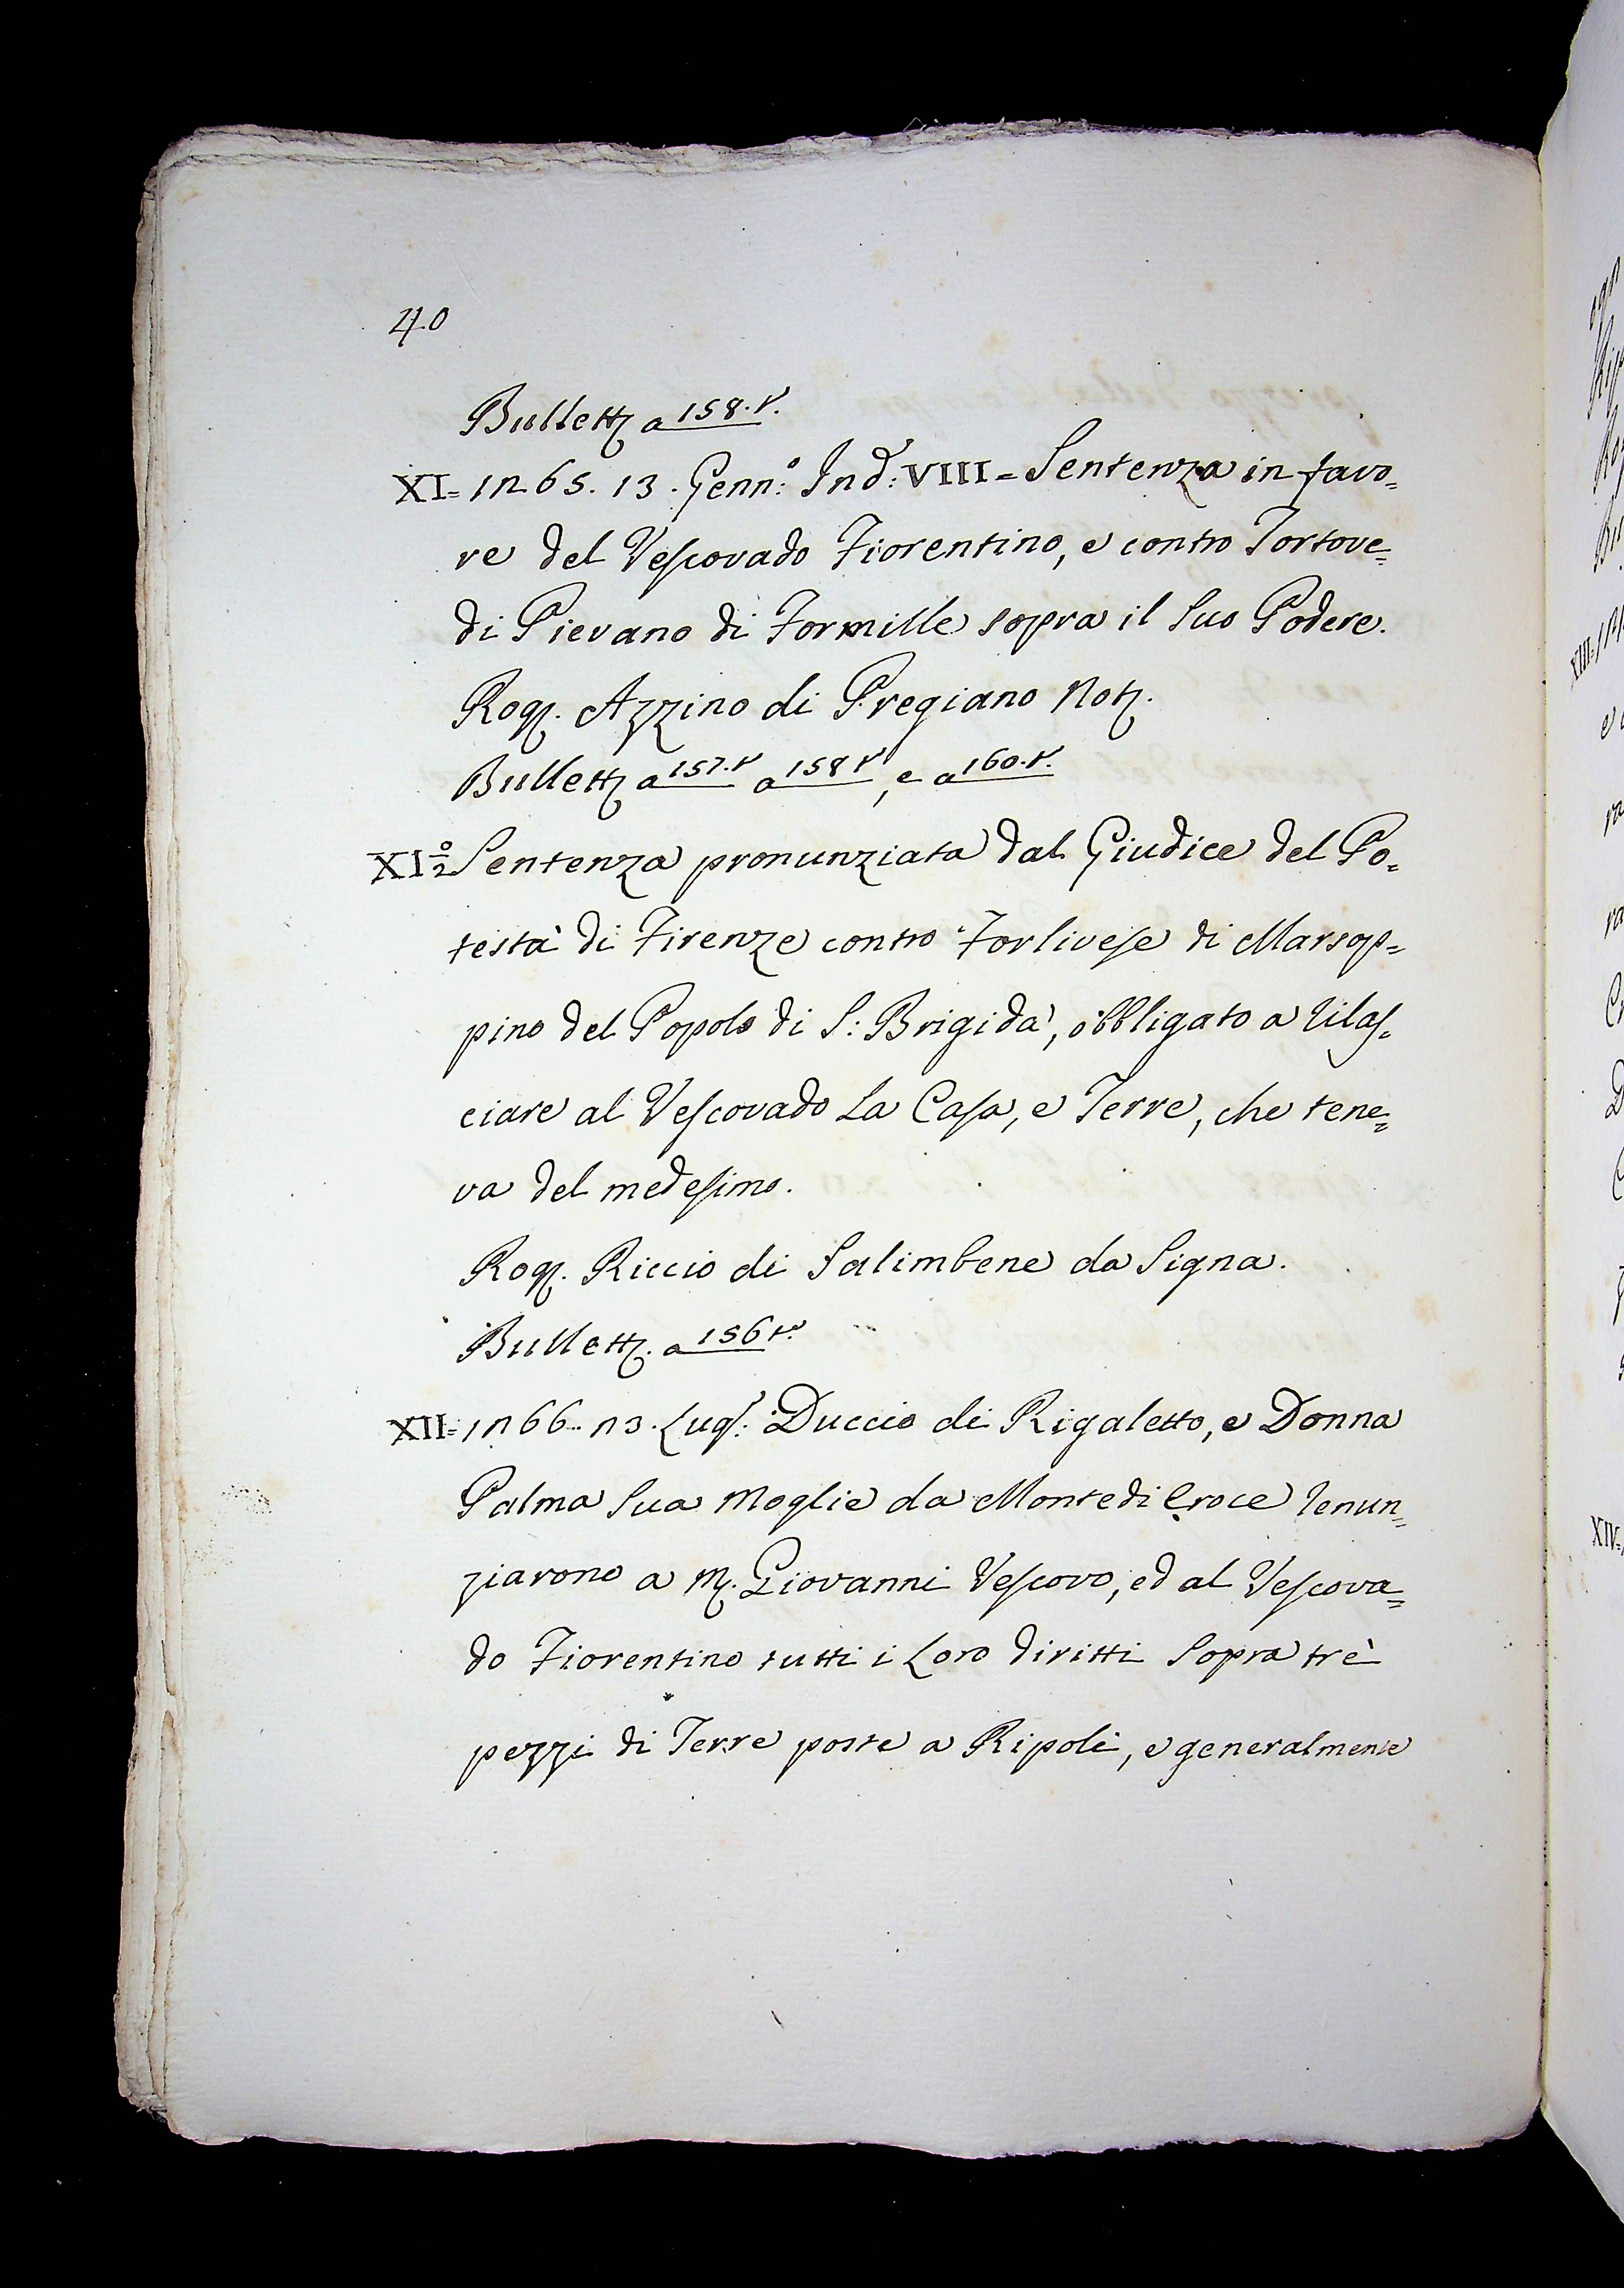 40
Bullett. a 158. v.
XI= 1265. 13. Genn:o Ind: VIII = Sentenza in favo=
re del Vescovado Fiorentino, e contro Tortove=
di Pievano di Formille sopra il suo Podere.
Rog. Azzino di Pregiano Not.
Bullett. a 157. v. a 158 v., e a 160. v.
XI 2o Sentenza pronunziata dal Giudice del Po=
testà di Firenze contro Forlivese di Marsop=
pino del Popolo di S: Brigida, obbligato a rilas=
ciare al Vescovado La Casa, e Terre, che tene=
va del medesimo.
Rog. Riccio di Salimbene da Signa.
Bullett. a 156 v.
XII= 1266. 23. Lug: Duccio di Rigaletto, e Donna
Palma sua Moglie da Monte di Croce renun=
ziarono a M. Giovanni Vescovo, ed al Vescova=
do Fiorentino tutti i Loro diritti sopra trè
pezzi di Terre poste a Ripoli, e generalmente